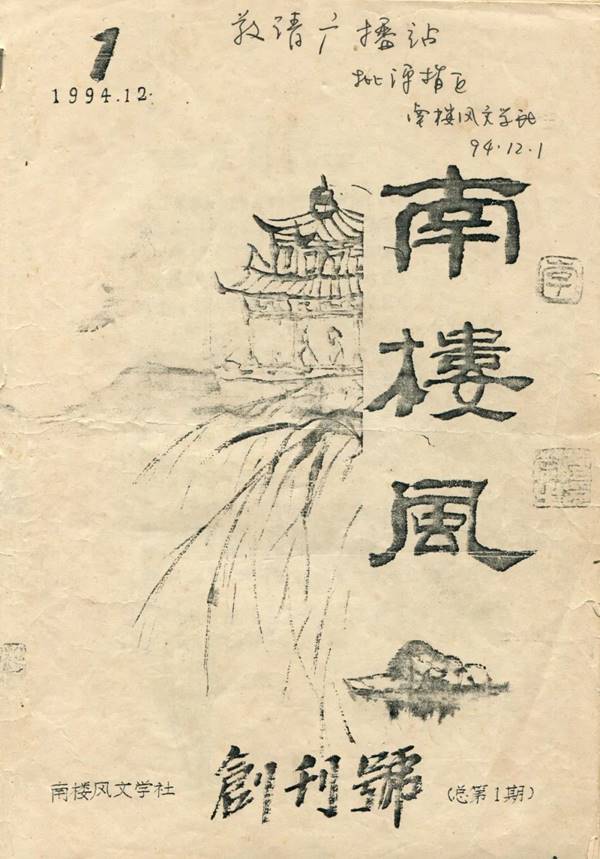 1
1994.12.
敬请广播站
批评指正
南楼风文学社
94.12.1
南樓風
南楼风文学社
創刊號
(总第1期)